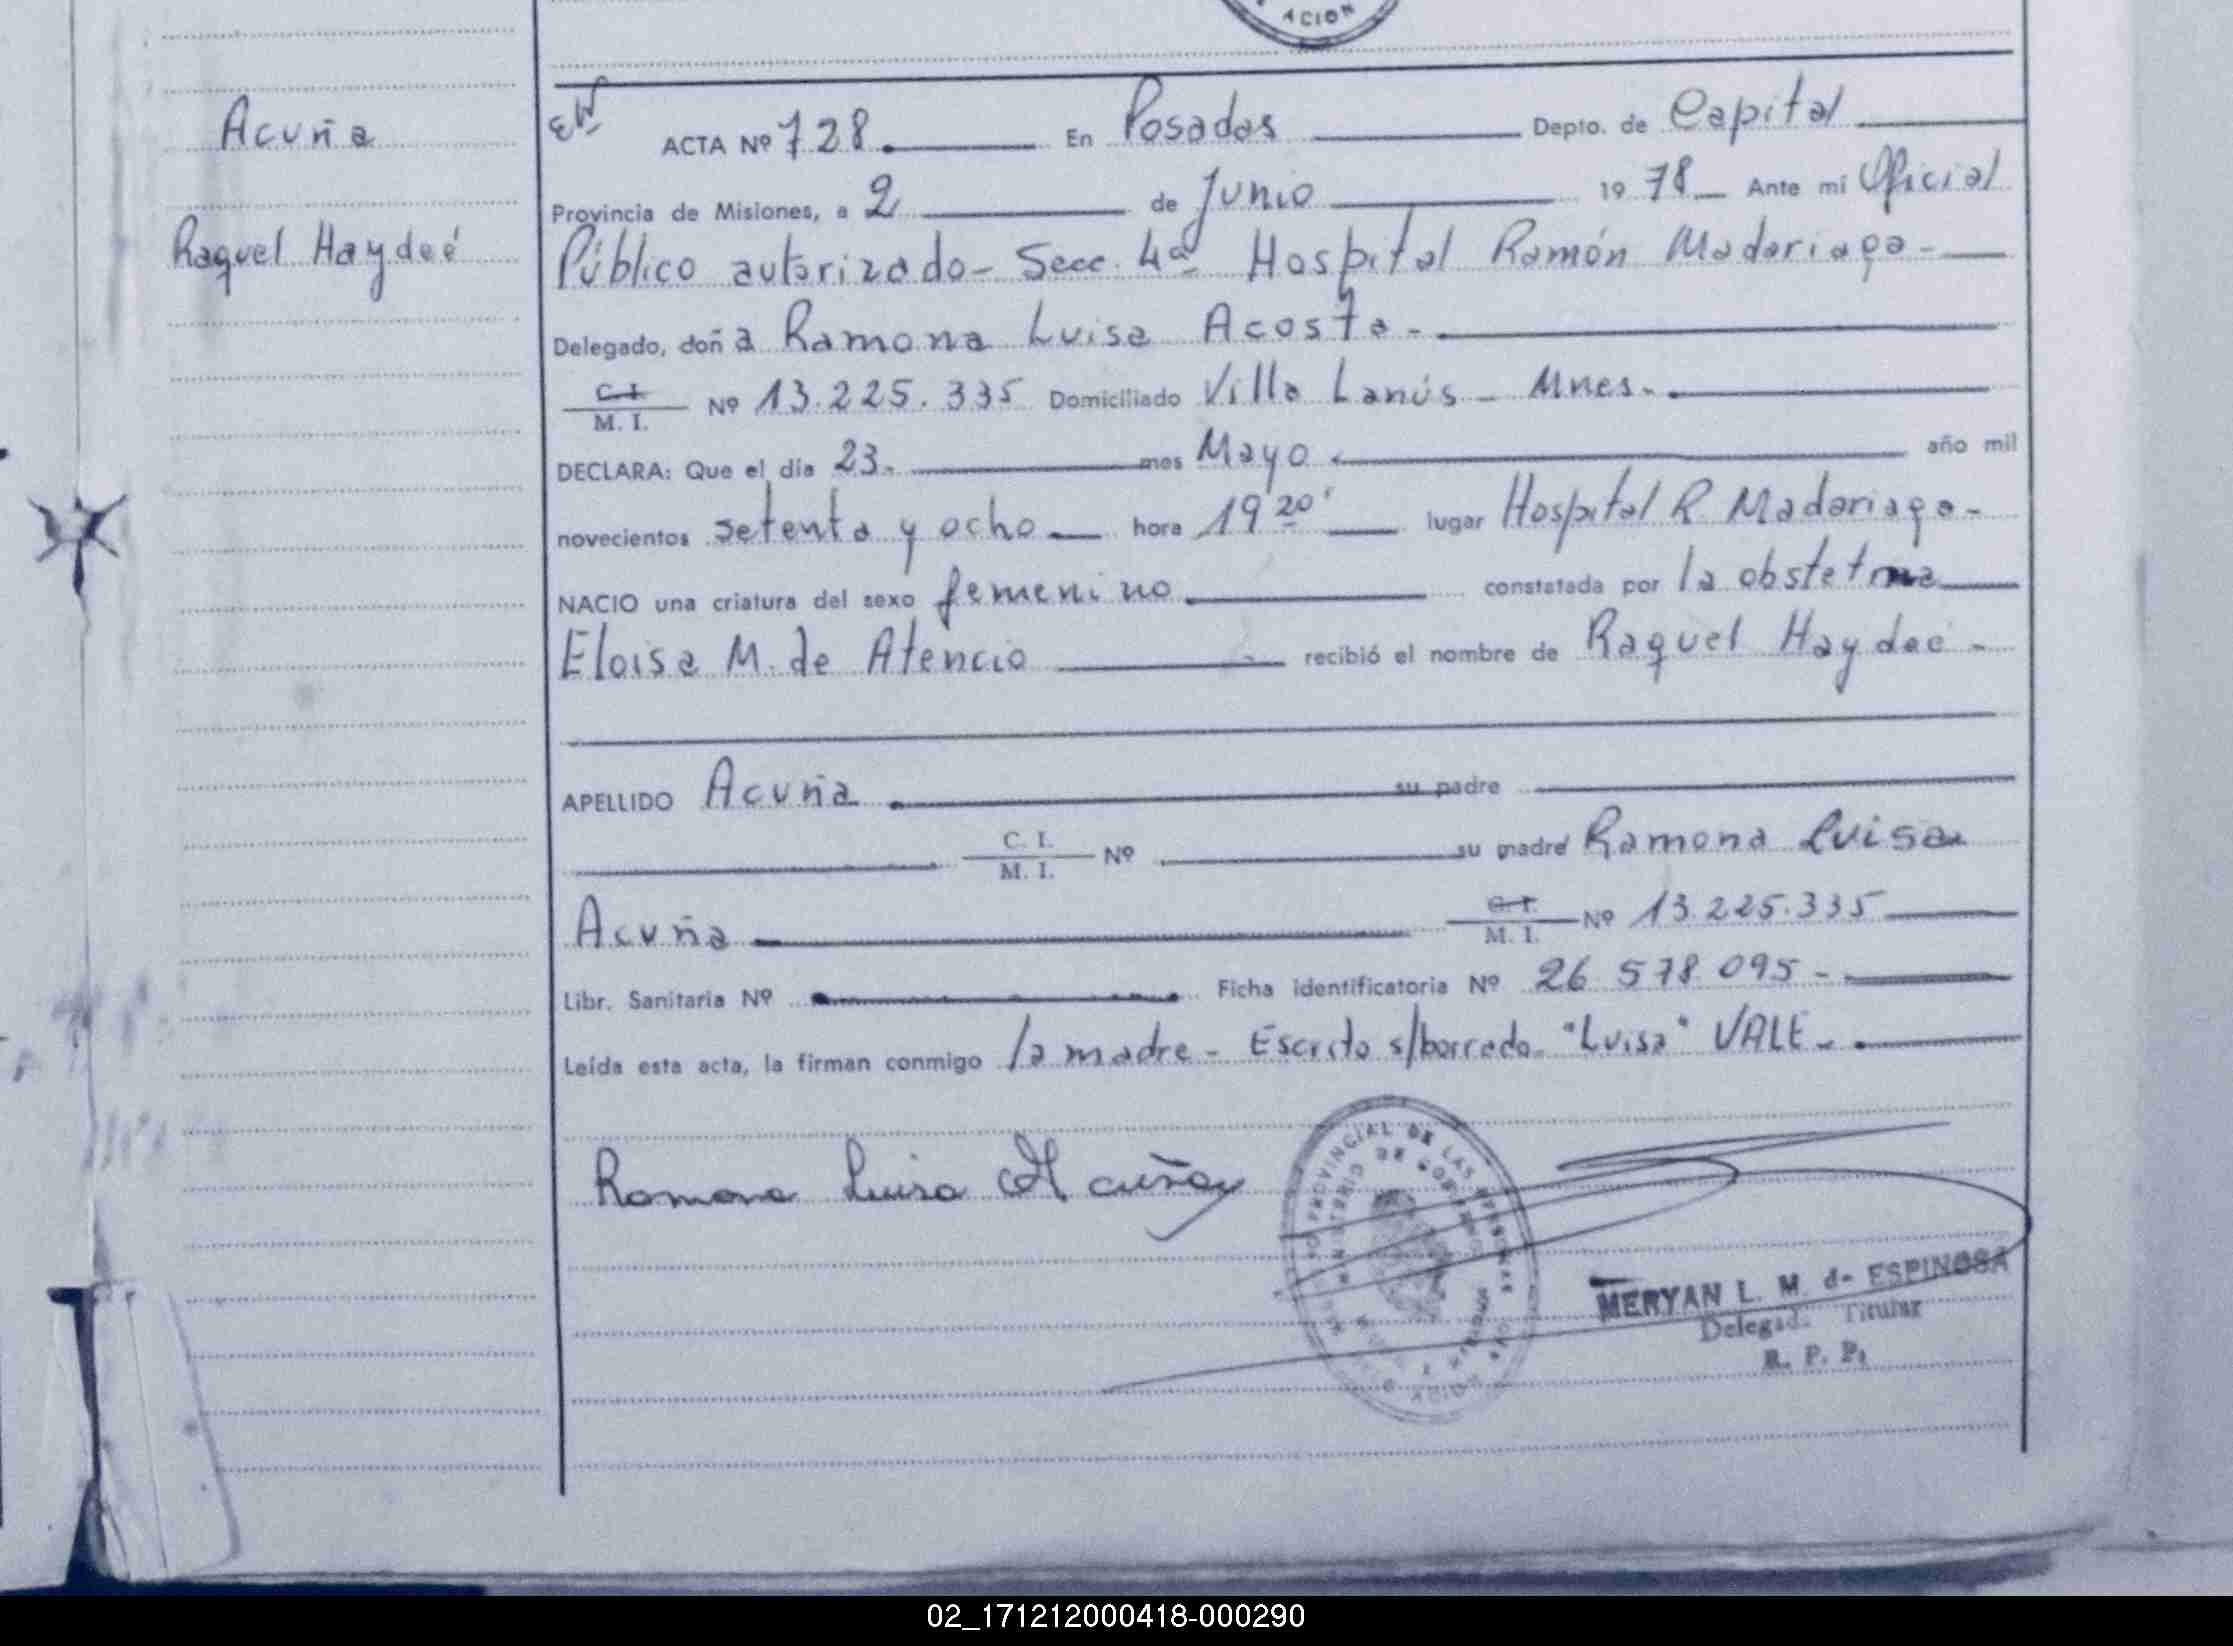 ACION
Acuña
Raquel Haydeé
EW
ACTA Nº 728. En Posadas Depto. de Capital
Provincia de Misiones, a 2 de Junio 1978 Ante mí Oficial
Público autorizado - Secc. 4ª Hospital Ramón Madariaga -
Delegado, doña Ramona Luisa Acosta -
C. I.
M. I. Nº 13.225.335 Domiciliado Villa Lanús - Mnes.
DECLARA: Que el día 23. mes Mayo año mil
novecientos setenta y ocho hora 19 20' lugar Hospital R Madariaga -
NACIO una criatura del sexo femenino constatada por la obstetrica
Eloisa M. de Atencio recibió el nombre de Raquel Haydeé -
APELLIDO Acuña su padre
C. I.
M. I. Nº su madre Ramona Luisa
Acuña C. I.
M. I. Nº 13.225.335
Libr. Sanitaria Nº Ficha identificatoria Nº 26 578 095 -
Leída esta acta, la firman conmigo la madre - Escrito s/borrado "Luisa" VALE -
Ramona Luisa Acuña
PROVINCIAL DE LAS PERSONAS
MINISTERIO DE GOBIERNO
MERYAN L. M. de ESPINOSA
Delegada Titular
R. P. P.
02_171212000418-000290